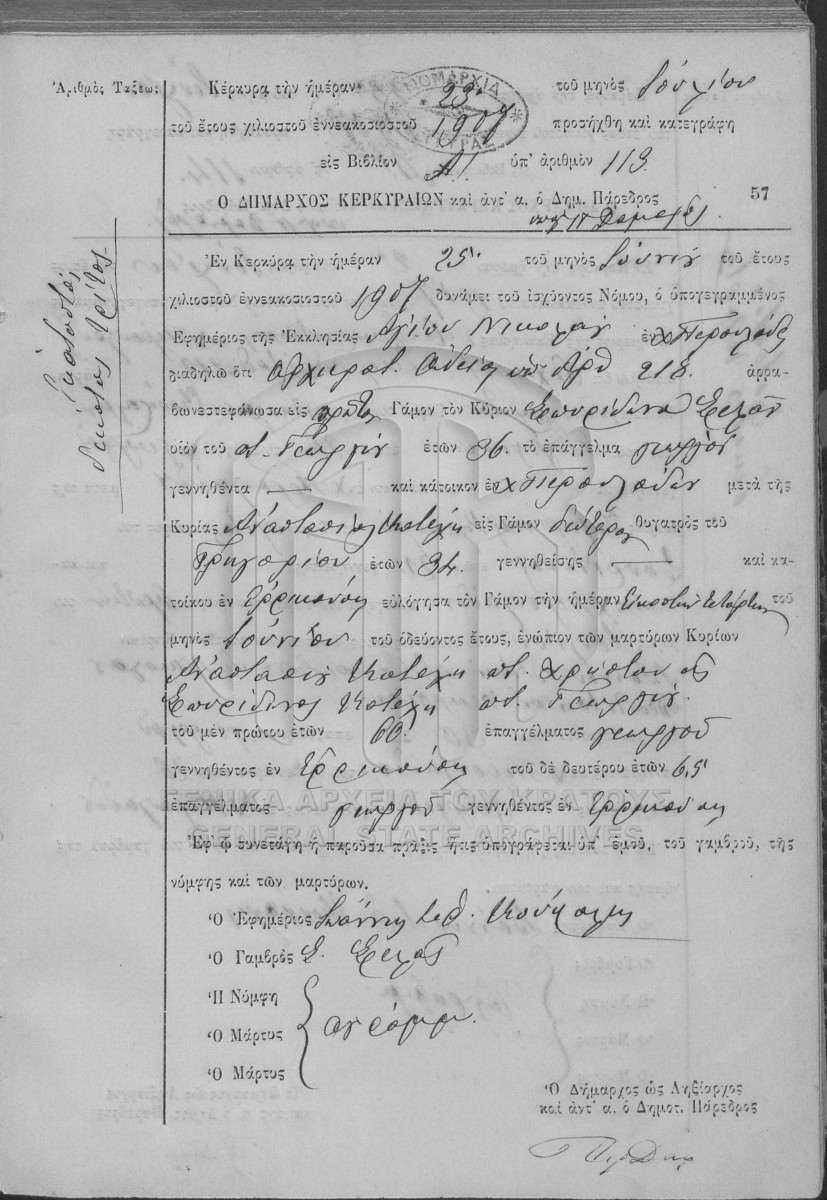 Ἀριθμὸς Τάξεως
Ἑκατοστὸς
δέκατος τρίτος
Κέρκυρα τὴν ἡμέραν 23 τοῦ μηνὸς Ἰουλίου
τοῦ ἔτους χιλιοστοῦ ἐννεακοσιοστοῦ 1907 προσήχθη καὶ κατεγράφη
εἰς Βιβλίον Α! ὑπ' ἀριθμὸν 113
Ο ΔΗΜΑΡΧΟΣ ΚΕΡΚΥΡΑΙΩΝ καὶ ἀντ' α. ὁ Δημ. Πάρεδρος
57
Ἐν Κερκύρᾳ τὴν ἡμέραν 25 τοῦ μηνὸς Ἰουνίου τοῦ ἔτους
χιλιοστοῦ ἐννεακοσιοστοῦ 1907 δυνάμει τοῦ ἰσχύοντος Νόμου, ὁ ὑπογεγραμμένος
Ἐφημέριος τῆς Ἐκκλησίας Ἁγίου Νικολάου ἐν χ Περουλάδες
διαδηλῶ ὅτι ἀρχιερατ. ἀδείας ὑπ' ἀρθ 218. ἀρρα-
βωνεστεφάνωσα εἰς πρῶτον Γάμον τὸν Κύριον Σπυρίδωνα
υἱὸν τοῦ ποτ. Γεωργίου ἐτῶν 36. τὸ ἐπάγγελμα γεωργὸν
γεννηθέντα — καὶ κάτοικον ἐν χ Περουλάδων μετὰ τῆς
Κυρίας Ἀναστασίας Κατέχη εἰς Γάμον δεύτερον θυγατρὸς τοῦ
Γρηγορίου ἐτῶν 34. γεννηθείσης — καὶ κα-
τοίκου ἐν Ἐρρικούσῃ εὐλόγησα τὸν Γάμον τὴν ἡμέραν Εἰκοστὴν τετάρτην τοῦ
μηνὸς Ἰουνίου τοῦ ὁδεύοντος ἔτους, ἐνώπιον τῶν μαρτύρων Κυρίων
Ἀναστασίου Κατέχη ποτ. Χρήστου καὶ
Σπυρίδωνος Κατέχη ποτ. Γεωργίου.
τοῦ μὲν πρώτου ἐτῶν 60. ἐπαγγέλματος γεωργοῦ
γεννηθέντος ἐν Ἐρρικούσῃ τοῦ δὲ δευτέρου ἐτῶν 65
ἐπαγγέλματος γεωργοῦ γεννηθέντος ἐν Ἐρρικούσῃ
ΓΕΝΙΚΑ ΑΡΧΕΙΑ ΤΟΥ ΚΡΑΤΟΥΣ
GENERAL STATE ARCHIVES
Ἐφ' ᾧ συνετάγη ἡ παροῦσα πρᾶξις ἥτις ὑπογράφεται ὑπ' ἐμοῦ, τοῦ γαμβροῦ, τῆς
νύμφης καὶ τῶν μαρτύρων.
Ὁ Ἐφημέριος Ἰωάννης
Ὁ Γαμβρὸς Σ.
Ἡ Νύμφη
Ὁ Μάρτυς ἀγράμμ.
Ὁ Μάρτυς
Ὁ Δήμαρχος ὡς Ληξίαρχος
καὶ ἀντ' α. ὁ Δημοτ. Πάρεδρος